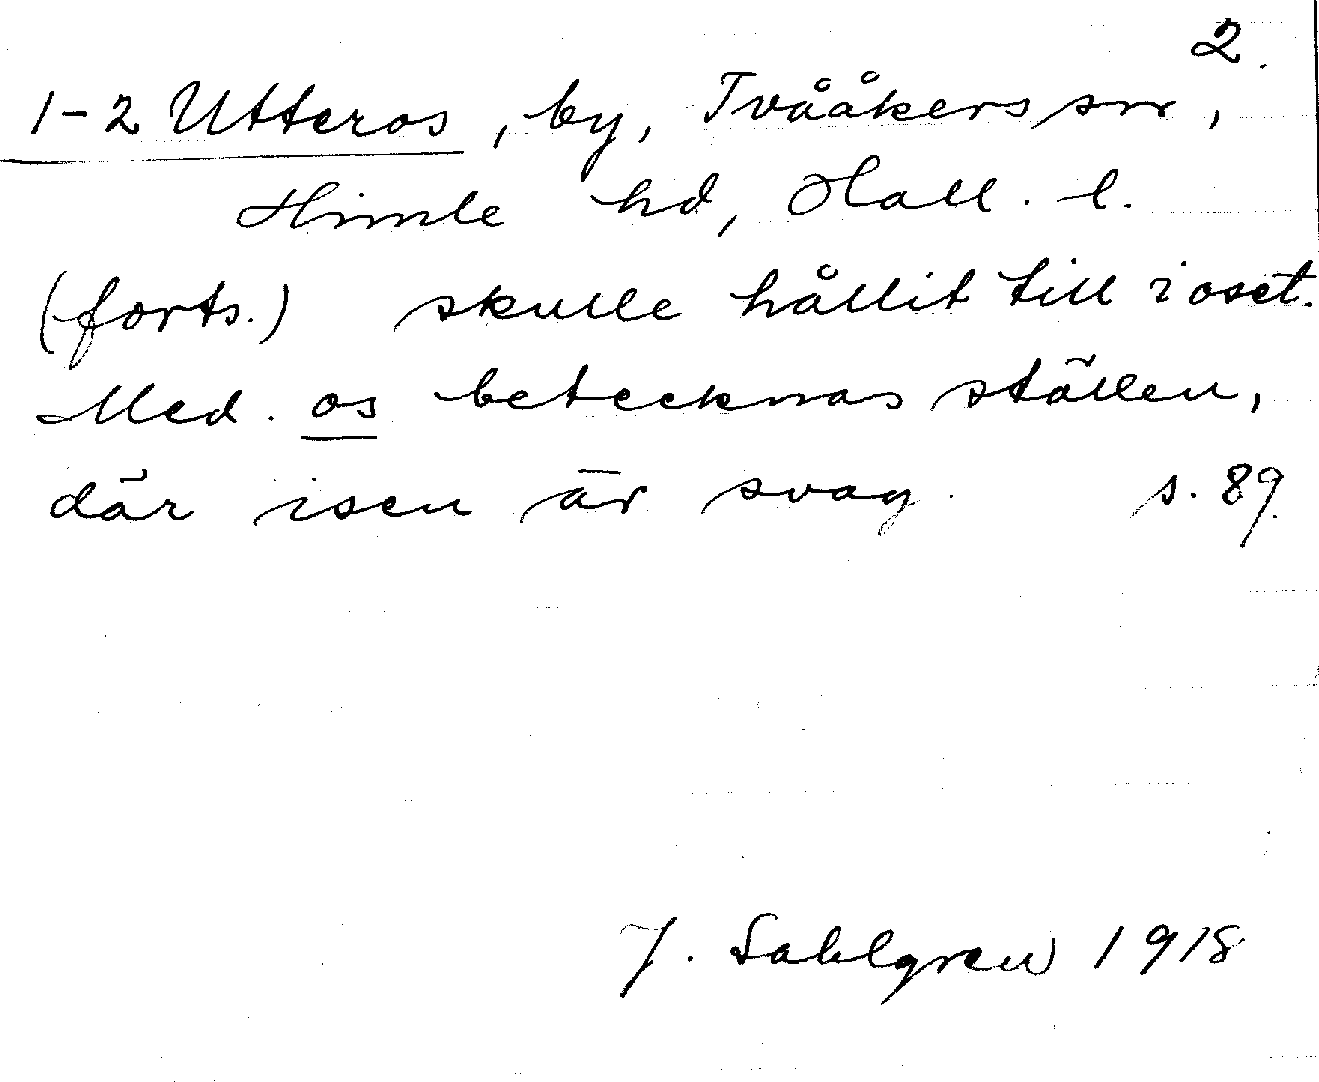 2.
1-2 Utteros, by, Tvååkers sn,
Himle hd, Hall. l.
(forts.) skulle hållit till i oset.
Med. os betecknas ställen,
där isen är svag. s. 89.
J. Sahlgren 1918